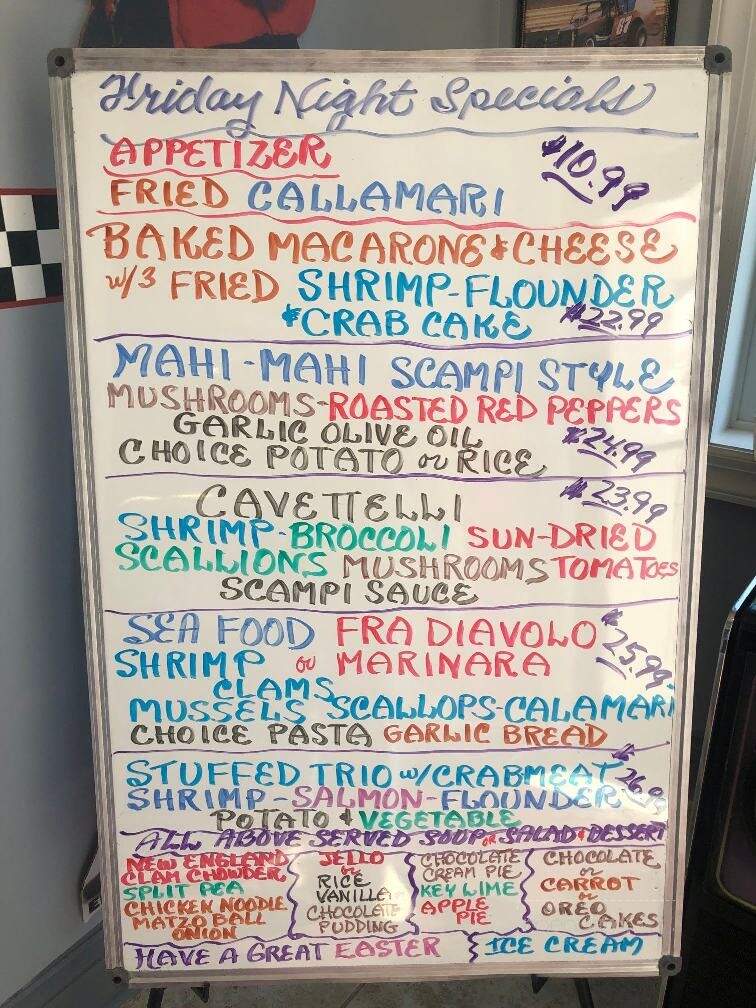 Friday Night Specials
APPETIZER $10.99
FRIED CALLAMARI
BAKED MACARONE & CHEESE
w/3 FRIED SHRIMP-FLOUNDER
& CRAB CAKE $22.99
MAHI-MAHI SCAMPI STYLE
MUSHROOMS-ROASTED RED PEPPERS
GARLIC OLIVE OIL $24.99
CHOICE POTATO or RICE
CAVETTELLI $23.99
SHRIMP-BROCCOLI SUN-DRIED
SCALLIONS MUSHROOMS TOMATOES
SCAMPI SAUCE
SEA FOOD FRA DIAVOLO $25.99
SHRIMP or MARINARA
CLAMS
MUSSELS SCALLOPS-CALAMARI
CHOICE PASTA GARLIC BREAD
STUFFED TRIO w/CRABMEAT $26.99
SHRIMP-SALMON-FLOUNDER
POTATO & VEGETABLE
ALL ABOVE SERVED SOUP or SALAD & DESSERT
NEW ENGLAND
CLAM CHOWDER
SPLIT PEA
CHICKEN NOODLE
MATZO BALL
ONION
JELLO
or
RICE
VANILLA
CHOCOLATE
PUDDING
CHOCOLATE
CREAM PIE
KEY LIME
APPLE
PIE
CHOCOLATE
or
CARROT
or
OREO
CAKES
HAVE A GREAT EASTER
ICE CREAM